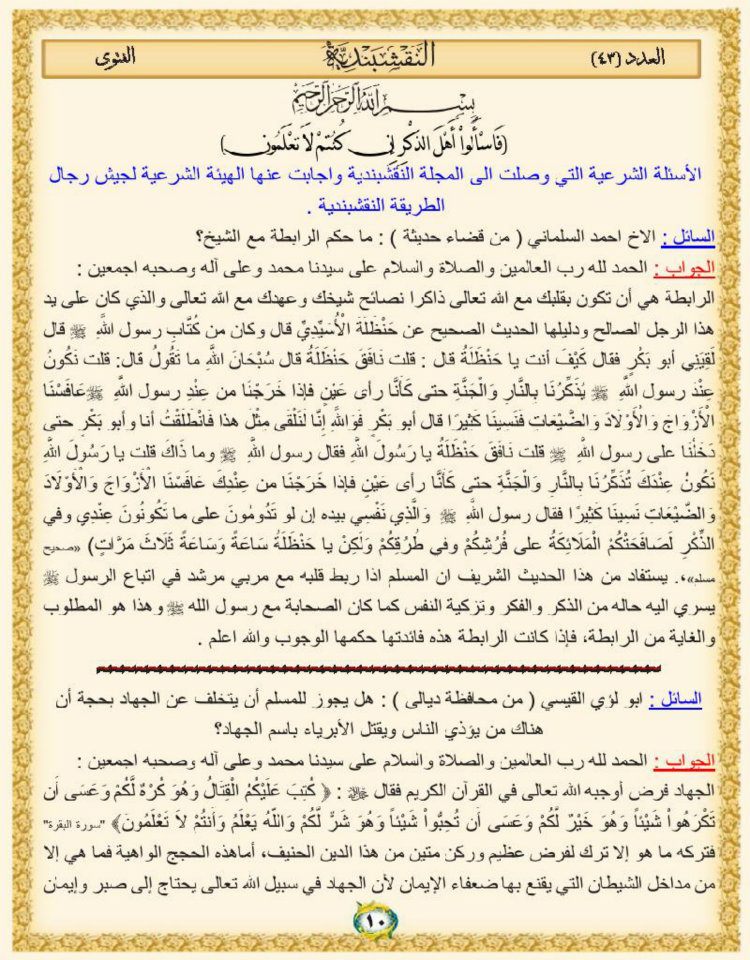 العدد (٤٣) النقشبندية الفتوى
بسم الله الرحمن الرحيم
(فَاسْأَلُواْ أَهْلَ الذِّكْرِ إِن كُنتُمْ لاَ تَعْلَمُونَ)
الأسئلة الشرعية التي وصلت الى المجلة النقشبندية واجابت عنها الهيئة الشرعية لجيش رجال
الطريقة النقشبندية .
السائل : الاخ احمد السلماني ( من قضاء حديثة ) : ما حكم الرابطة مع الشيخ؟
الجواب : الحمد لله رب العالمين والصلاة والسلام على سيدنا محمد وعلى آله وصحبه اجمعين :
الرابطة هي أن تكون بقلبك مع الله تعالى ذاكرا نصائح شيخك وعهدك مع الله تعالى والذي كان على يد
هذا الرجل الصالح ودليلها الحديث الصحيح عن حَنْظَلَةَ الْأُسَيِّدِيِّ قال وكان من كُتَّابِ رسول اللَّهِ ﷺ قال
لَقِيَنِي أبو بَكْرٍ فقال كَيْفَ أنت يا حَنْظَلَةُ قال : قلت نَافَقَ حَنْظَلَةُ قال سُبْحَانَ اللَّهِ ما تَقُولُ قال: قلت نَكُونُ
عِنْدَ رسول اللَّهِ ﷺ يُذَكِّرُنَا بِالنَّارِ وَالْجَنَّةِ حتى كَأَنَّا رأى عَيْنٍ فإذا خَرَجْنَا من عِنْدِ رسول اللَّهِ ﷺ عَافَسْنَا
الْأَزْوَاجَ وَالْأَوْلَادَ وَالضَّيْعَاتِ فَنَسِينَا كَثِيرًا قال أبو بَكْرٍ فَوَاللَّهِ إِنَّا لَنَلْقَى مِثْلَ هذا فَانْطَلَقْتُ أنا وأبو بَكْرٍ حتى
دَخَلْنَا على رسول اللَّهِ ﷺ قلت نَافَقَ حَنْظَلَةُ يا رَسُولَ اللَّهِ فقال رسول اللَّهِ ﷺ وما ذَاكَ قلت يا رَسُولَ اللَّهِ
نَكُونُ عِنْدَكَ تُذَكِّرُنَا بِالنَّارِ وَالْجَنَّةِ حتى كَأَنَّا رأى عَيْنٍ فإذا خَرَجْنَا من عِنْدِكَ عَافَسْنَا الْأَزْوَاجَ وَالْأَوْلَادَ
وَالضَّيْعَاتِ نَسِينَا كَثِيرًا فقال رسول اللَّهِ ﷺ وَالَّذِي نَفْسِي بيده إن لو تَدُومُونَ على ما تَكُونُونَ عِنْدِي وفي
الذِّكْرِ لَصَافَحَتْكُمْ الْمَلَائِكَةُ على فُرُشِكُمْ وفي طُرُقِكُمْ وَلَكِنْ يا حَنْظَلَةُ سَاعَةً وَسَاعَةً ثَلَاثَ مَرَّاتٍ) «صحيح
مسلم»،. يستفاد من هذا الحديث الشريف ان المسلم اذا ربط قلبه مع مربي مرشد في اتباع الرسول ﷺ
يسري اليه حاله من الذكر والفكر وتزكية النفس كما كان الصحابة مع رسول الله ﷺ وهذا هو المطلوب
والغاية من الرابطة، فإذا كانت الرابطة هذه فائدتها حكمها الوجوب والله اعلم .
السائل : ابو لؤي القيسي ( من محافظة ديالى ) : هل يجوز للمسلم أن يتخلف عن الجهاد بحجة أن
هناك من يؤذي الناس ويقتل الأبرياء باسم الجهاد؟
الجواب : الحمد لله رب العالمين والصلاة والسلام على سيدنا محمد وعلى آله وصحبه اجمعين :
الجهاد فرض أوجبه الله تعالى في القرآن الكريم فقال : ﴿ كُتِبَ عَلَيْكُمُ الْقِتَالُ وَهُوَ كُرْهٌ لَّكُمْ وَعَسَى أَن
تَكْرَهُواْ شَيْئاً وَهُوَ خَيْرٌ لَّكُمْ وَعَسَى أَن تُحِبُّواْ شَيْئاً وَهُوَ شَرٌّ لَّكُمْ وَاللّهُ يَعْلَمُ وَأَنتُمْ لاَ تَعْلَمُونَ﴾ "سورة البقرة"
فتركه ما هو إلا ترك لفرض عظيم وركن متين من هذا الدين الحنيف، أماهذه الحجج الواهية فما هي إلا
من مداخل الشيطان التي يقنع بها ضعفاء الإيمان لأن الجهاد في سبيل الله تعالى يحتاج إلى صبر وإيمان
١٠